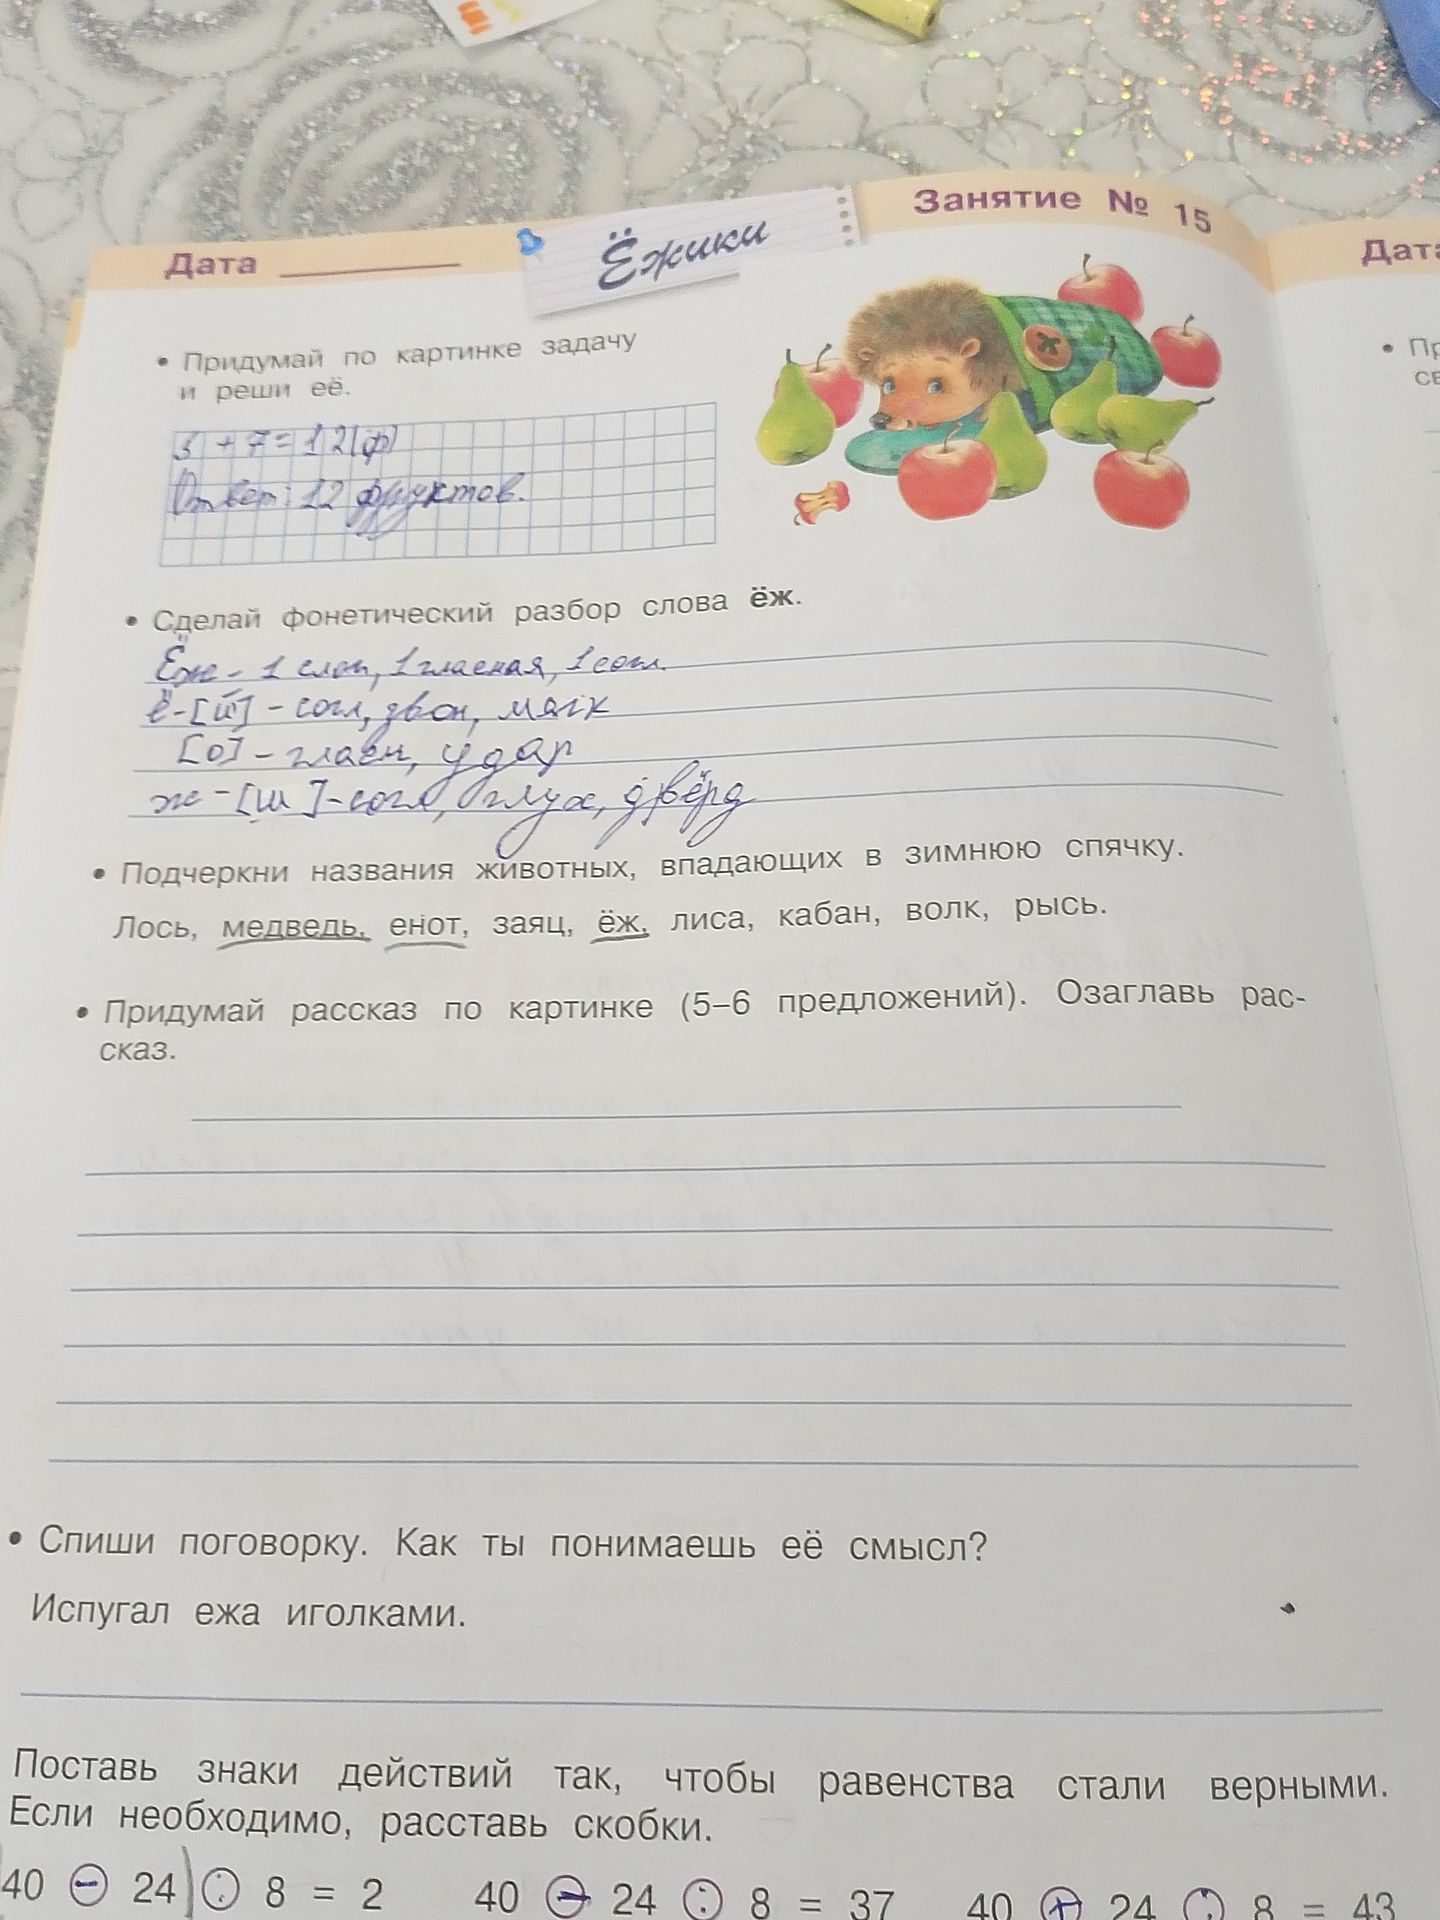 Дата
Ёжики
Занятие № 15
Дата
• Придумай по картинке задачу
и реши её.
+ 7 = 12 (ф)
Ответ: 12 фруктов.
• Сделай фонетический разбор слова ёж.
Ёж - 1 слог, 1 гласная, 1 согл.
ё - [й] - согл, звон, мягк
[о] - гласн, удар
ж - [ш] - согл, глух, твёрд
• Подчеркни названия животных, впадающих в зимнюю спячку.
Лось, медведь, енот, заяц, ёж, лиса, кабан, волк, рысь.
• Придумай рассказ по картинке (5–6 предложений). Озаглавь рас-
сказ.
• Спиши поговорку. Как ты понимаешь её смысл?
Испугал ежа иголками.
Поставь знаки действий так, чтобы равенства стали верными.
Если необходимо, расставь скобки.
40 - 24) : 8 = 2 40 - 24 : 8 = 37 40 + 24 : 8 = 43